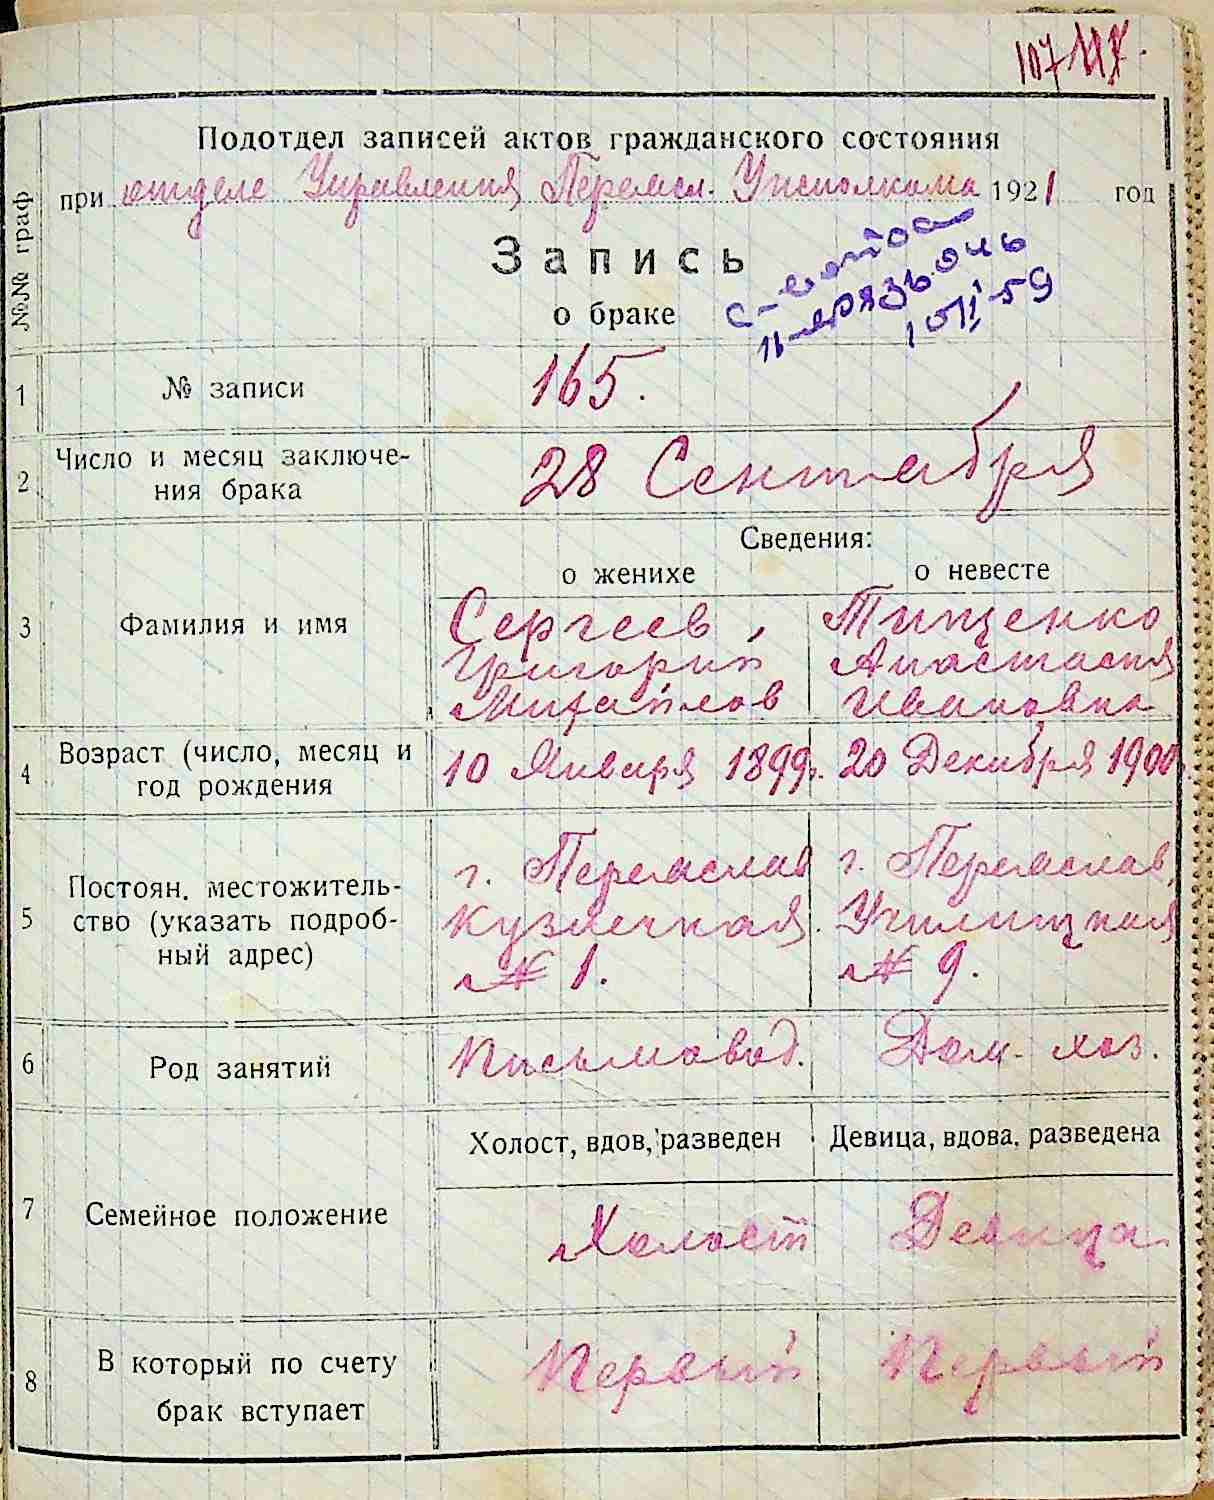 107
Подотдел записей актов гражданского состояния
при отделе Управления Перемсл. Уисполкома 1921 год
№№ граф
Запись
о браке
59
1 № записи 165.
2 Число и месяц заключе-
ния брака 28 Сентября
Сведения:
о женихе о невесте
3 Фамилия и имя
Сергеев, Тищенко
Григорий Анастасия
Михайлов Ивановна
4 Возраст (число, месяц и
год рождения
10 Января 1899г. 20 Декабря 1900г.
5 Постоян. местожитель-
ство (указать подроб-
ный адрес)
г. Перемслав г. Перемслав,
Кузнечная. Училищная
№ 1. № 9.
6 Род занятий Письмовод. Дом. хоз.
Холост, вдов, разведен Девица, вдова, разведена
7 Семейное положение Холост Девица
8 В который по счету
брак вступает Первый Первый